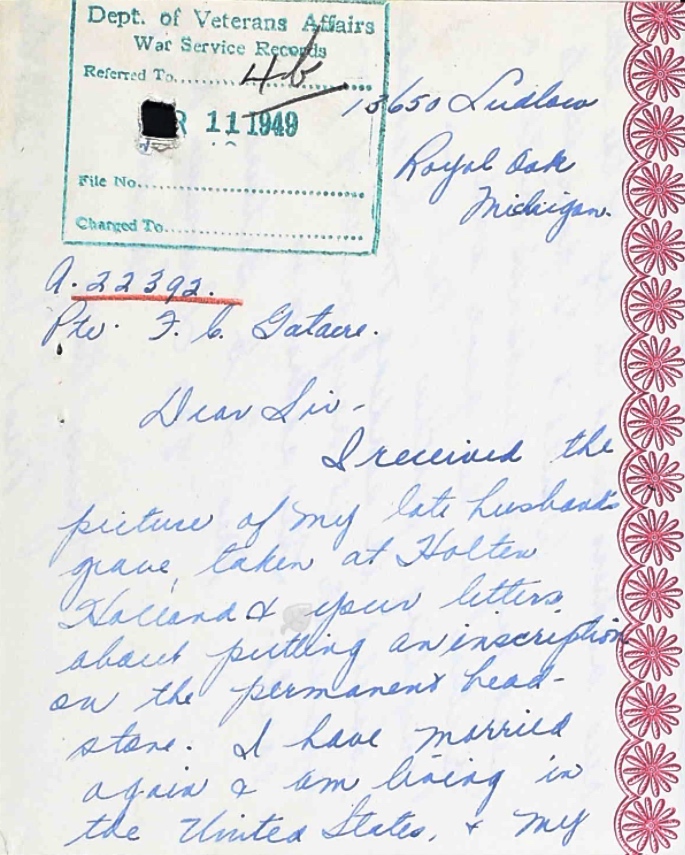 Dept. of Veterans Affairs
War Service Records
Referred To.......... 4b
R 11 1949
File No.
Charged To.
13650 Ludlow
Royal Oak
Michigan.
A. 22392.
Pte. F. C. Gataere.
Dear Sir -
I received the
picture of my late husband's
grave, taken at Holten
Holland & your letters
about putting an inscription
on the permanent head-
stone. I have married
again & am living in
the United States, & my